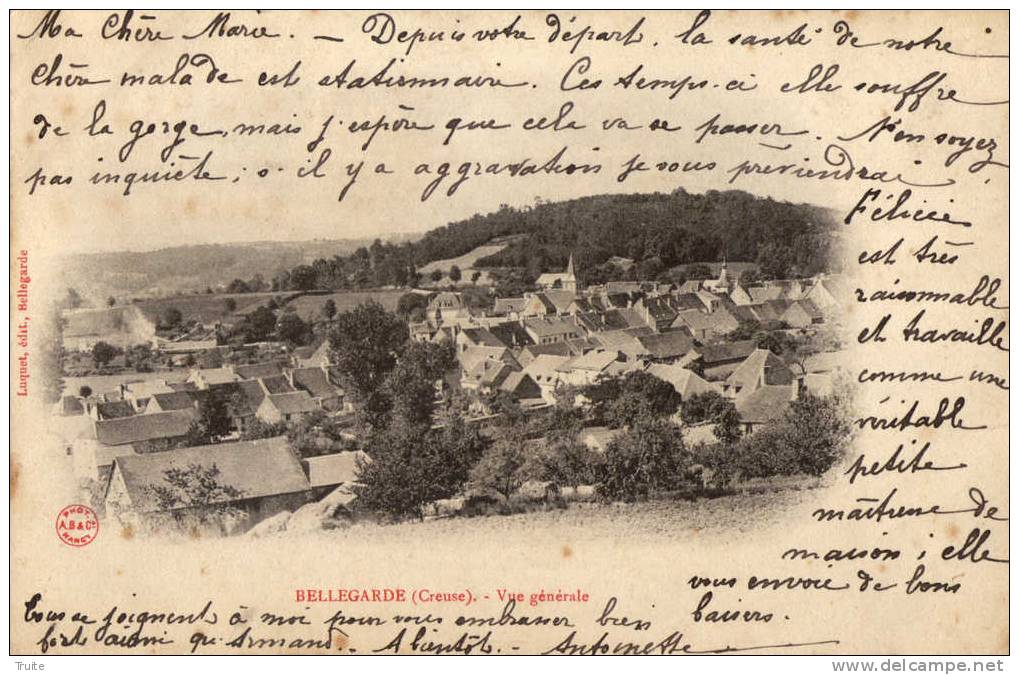 Ma Chère Marie. — Depuis votre départ, la santé de notre
chère malade est stationnaire. Ces temps-ci elle souffre
de la gorge, mais j'espère que cela va se passer. N'en soyez
pas inquiète; s'il y a aggravation je vous préviendrai.
Félicie
est très
raisonnable
et travaille
comme une
véritable
petite
maîtresse de
maison; elle
vous envoie de bons
baisers.
Tous se joignent à moi pour vous embrasser bien
fort ainsi qu'Armand. - A bientôt. - Antoinette
BELLEGARDE (Creuse). - Vue générale
Luquet, édit., Bellegarde
PHOT.
A.B & Cie
NANCY
Truite
©delcampe.net